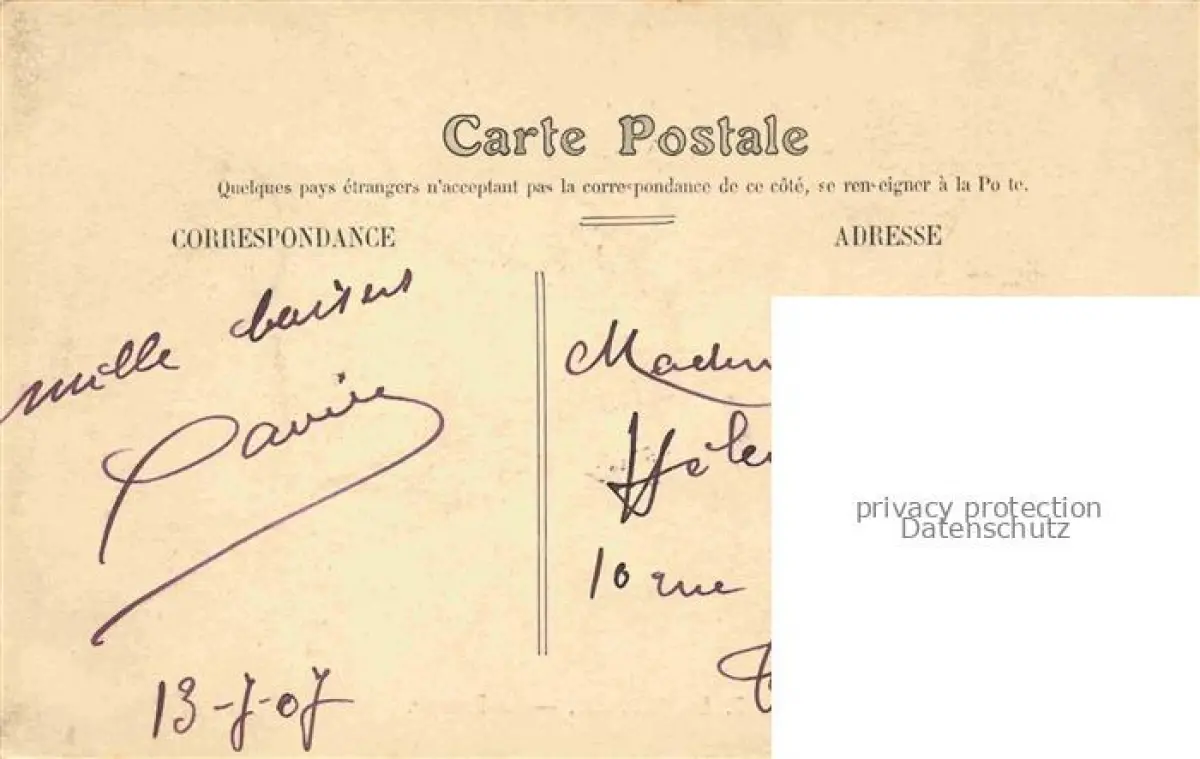 Carte Postale
Quelques pays étrangers n'acceptant pas la correspondance de ce côté, se renseigner à la Poste.
CORRESPONDANCE
ADRESSE
mille baisers
13-7-07
Madem
Hélen
10 rue
privacy protection
Datenschutz